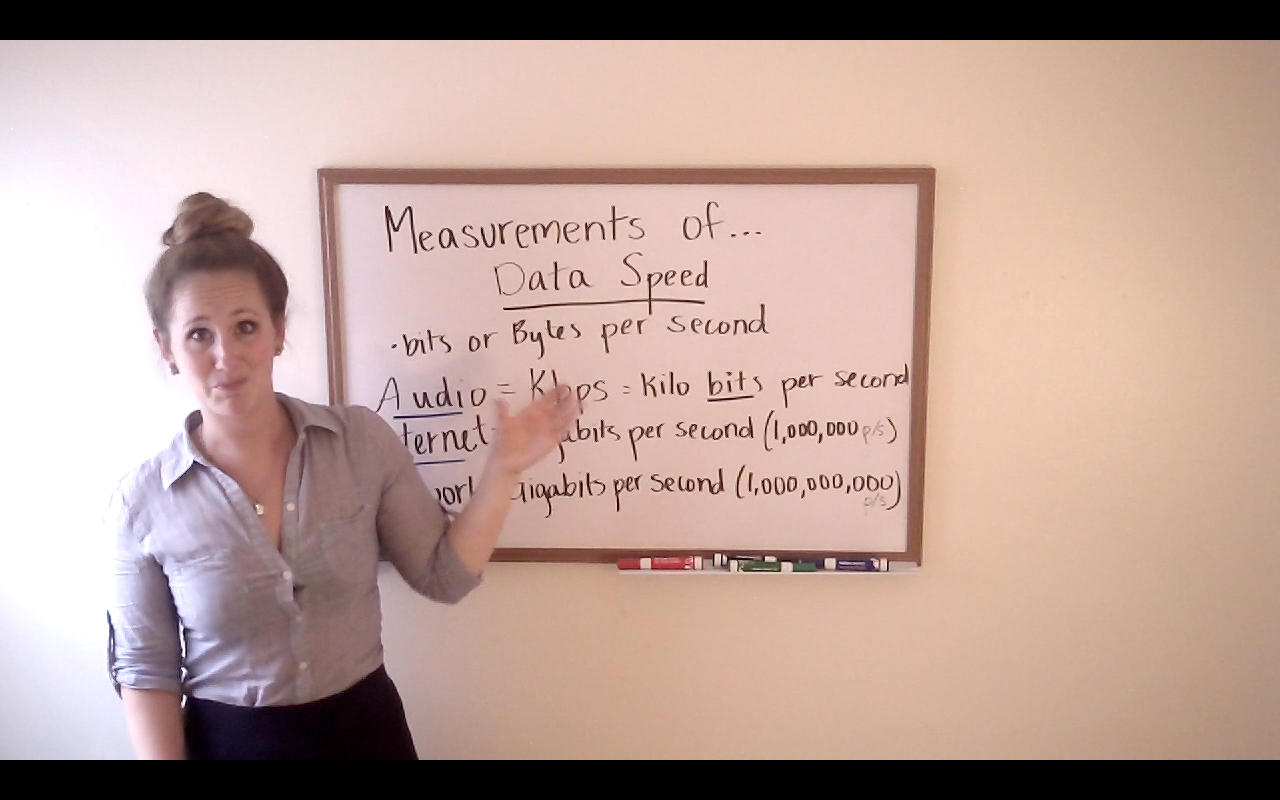 Measurements of...
Data Speed
• bits or Bytes per second
Audio = Kbps = Kilo bits per second
ternet abits per second (1,000,000 p/s)
Gigabits per second (1,000,000,000)
p/s